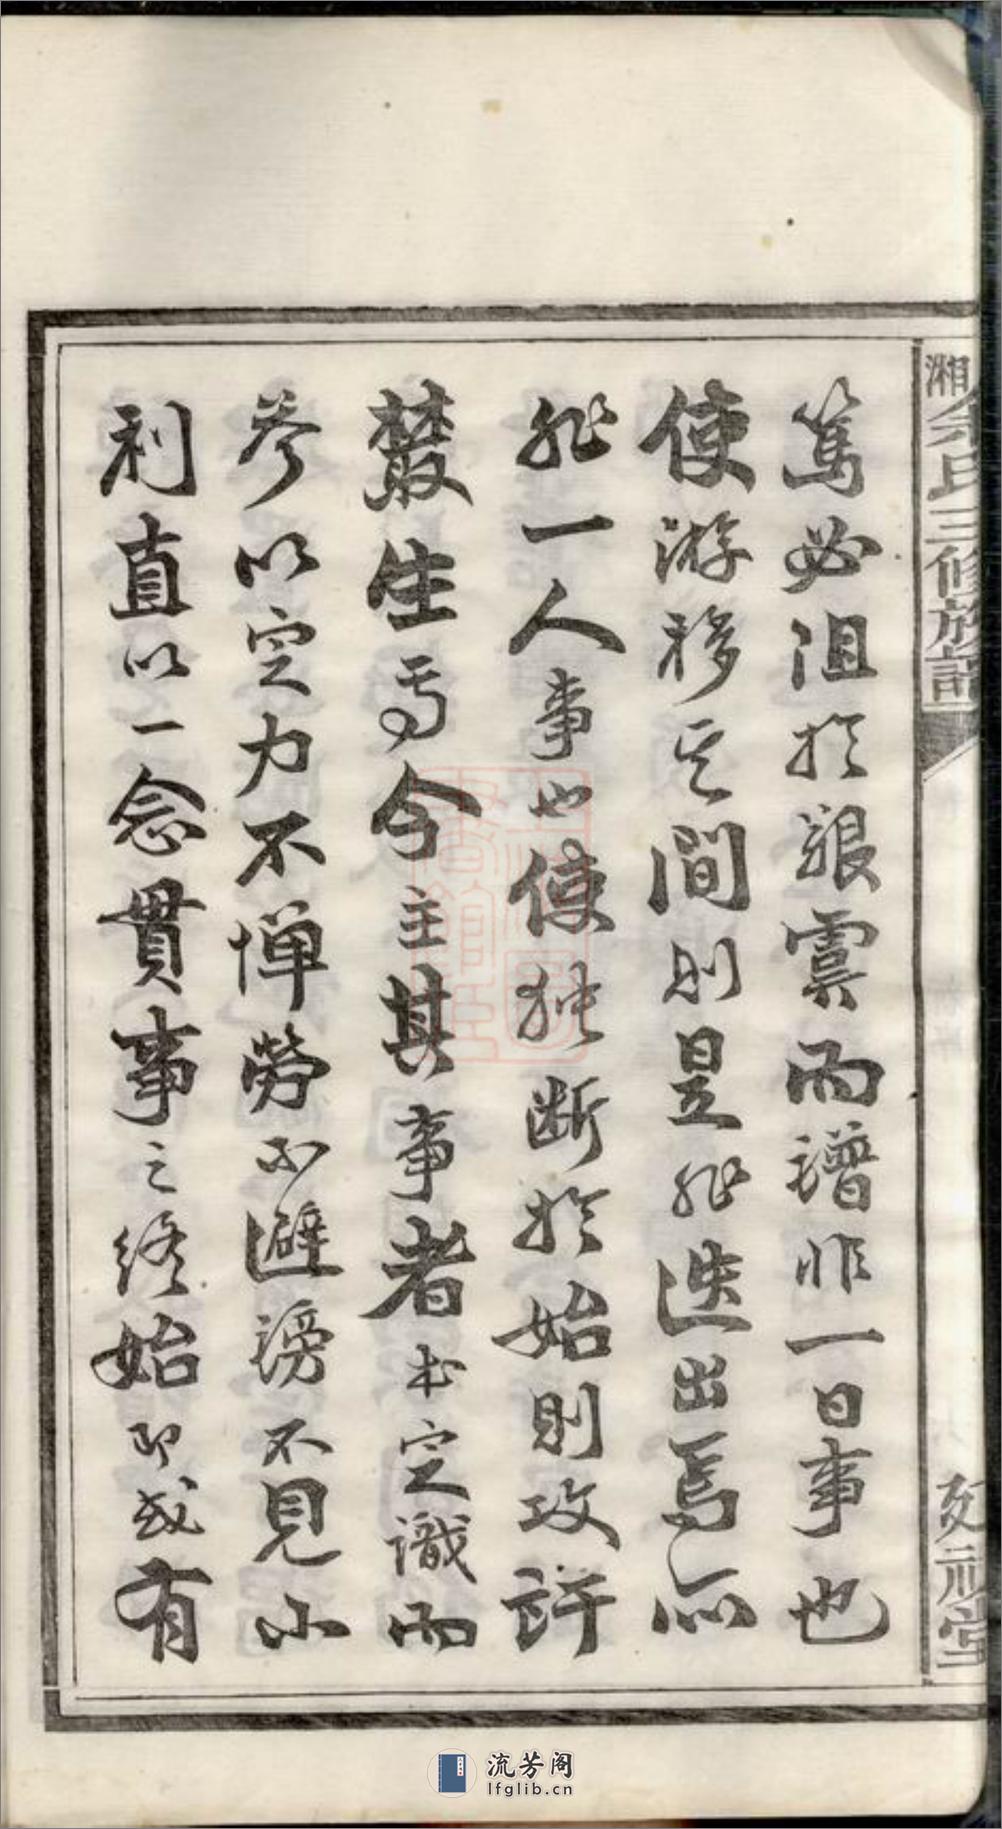 湘余氏三修族譜
篤必阻於艱虞而譜非一日事也
使游移其間則是非迭出焉亦
非一人事也使獨斷於始則攻訐
叢生焉今主其事者本定識而
参以定力不憚勞不避謗不見小
利直以一念貫事之終始即或有
流芳阁
lfglib.cn